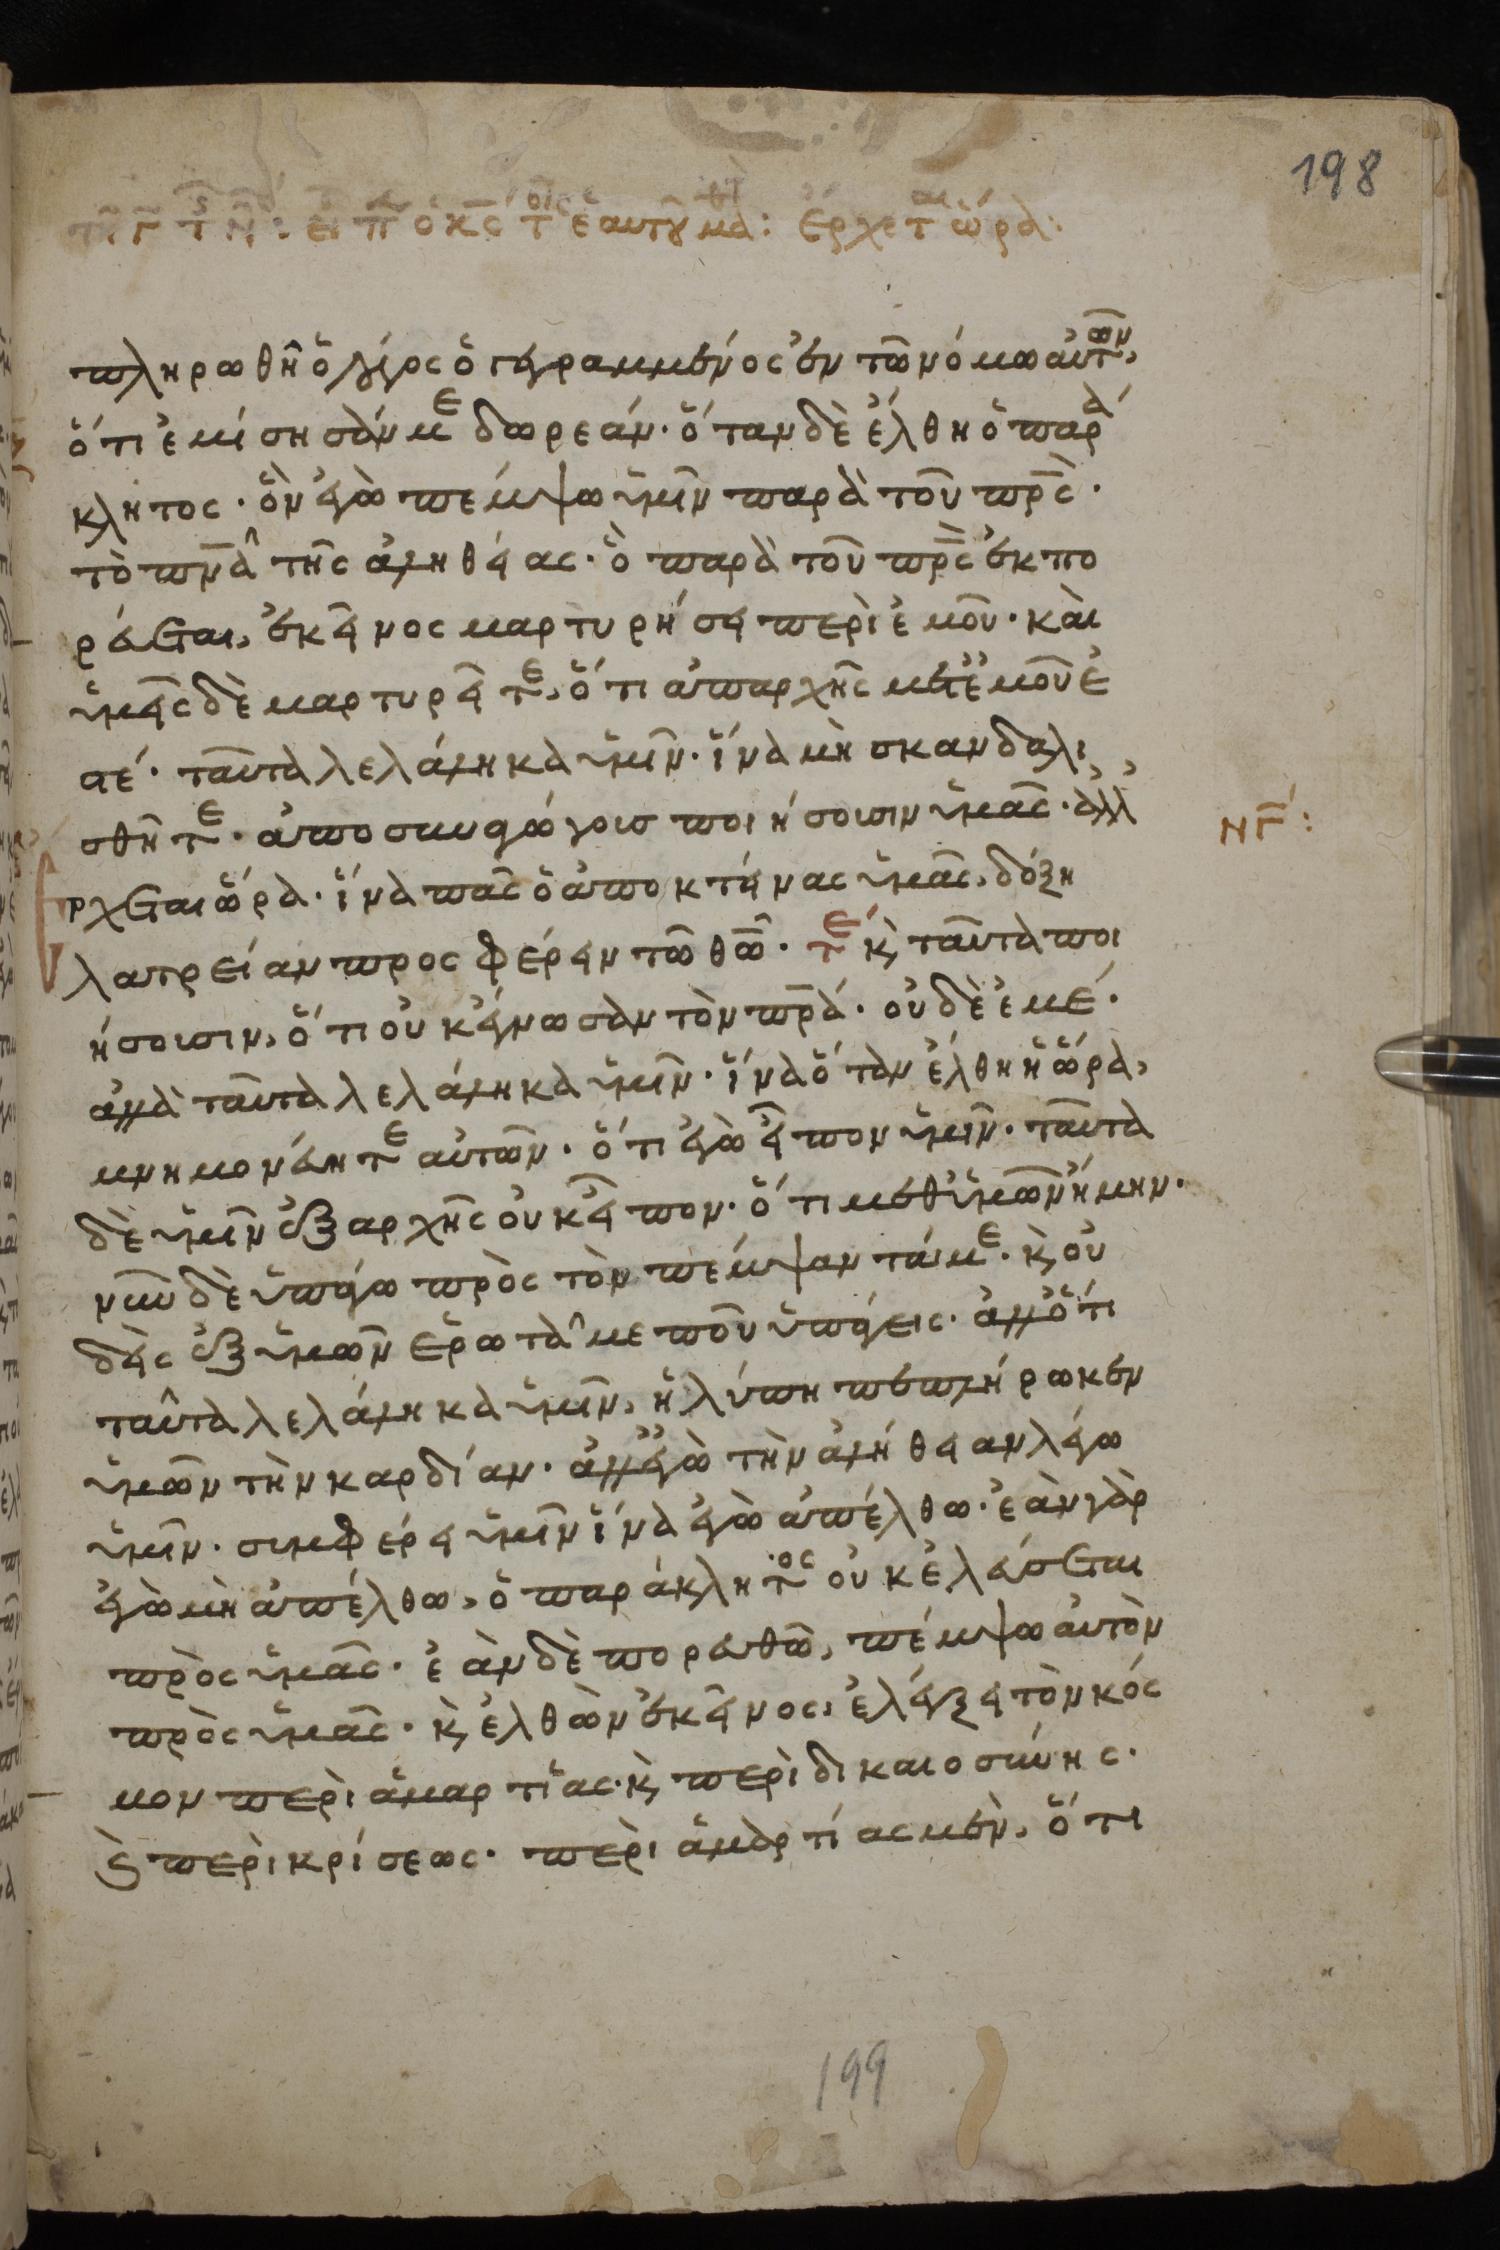 198
τῇ γ τ ς ν: εἶπ ὁ κς τοῖς ἑαυτοῦ μαθτ: ἔρχεται ὥρα:
πληρωθῆ ὁ λόγος ὁ γεγραμμένος ἐν τῶ νόμω αὐτῶν,
ὅτι ἐμίσησάν με δωρεάν· ὅταν δὲ ἔλθη ὁ παρά
κλητος· ὃν ἐγὼ πέμψω ὑμῖν παρὰ τοῦ πρς·
τὸ πνα τῆς ἀληθείας· ὃ παρὰ τοῦ πρς ἐκπο
ρεύεται, ἐκεῖνος μαρτυρήσει περὶ ἐμοῦ· καὶ
ὑμεῖς δὲ μαρτυρεῖτε, ὅτι ἀπαρχῆς μετ ἐμοῦ ἐ
στέ· ταῦτα λελάληκα ὑμῖν· ἵνα μὴ σκανδαλι
σθῆτε· ἀποσυναγώγους ποιήσουσιν ὑμᾶς· ἀλλ ἔ
ρχεται ὥρα· ἵνα πᾶς ὁ ἀποκτείνας ὑμᾶς, δόξη
λατρείαν προσφέρειν τῶ θῶ· τέ κ ταῦτα ποι
ήσουσιν, ὅτι οὐκ ἔγνωσαν τὸν πρα· οὐδὲ ἐμέ·
ἀλλὰ ταῦτα λελάληκα ὑμῖν· ἵνα ὅταν ἔλθη ἡ ὥρα,
μνημονεύητε αὐτῶν· ὅτι ἐγὼ εἶπον ὑμῖν· ταῦτα
δὲ ὑμῖν ἐξαρχῆς οὐκ εἶπον· ὅτι μεθ ὑμῶν ἤμην·
νῦν δὲ ὑπάγω πρὸς τὸν πέμψαντά με· κ οὐ
δεὶς ἐξ ὑμῶν ἐρωτᾶ με ποῦ ὑπάγεις· ἀλλ ὅτι
ταῦτα λελάληκα ὑμῖν, ἡ λύπη πεπλήρωκεν
ὑμῶν τὴν καρδίαν· ἀλλ ἐγὼ τὴν ἀλήθειαν λέγω
ὑμῖν· συμφέρει ὑμῖν ἵνα ἐγὼ ἀπέλθω· ἐὰν γὰρ
ἐγὼ μὴ ἀπέλθω, ὁ παράκλητος οὐκ ἐλεύσεται
πρὸς ὑμᾶς· ἐὰν δὲ πορευθῶ, πέμψω αὐτὸν
πρὸς ὑμᾶς· κ ἐλθὼν ἐκεῖνος, ἐλέγξει τὸν κόσ
μον περὶ ἁμαρτίας· κ περὶ δικαιοσύνης·
κ περὶ κρίσεως· περὶ ἁμαρτίας μὲν, ὅτι
νγ:
199